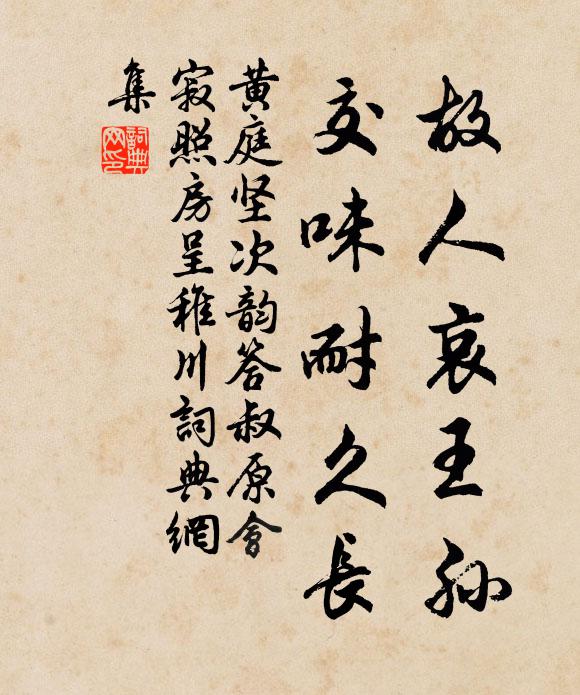 故人哀王孙
交味耐久長
黄庭坚次韵答叔原會
寂照房呈稚川詞典網
集
詞典
网印